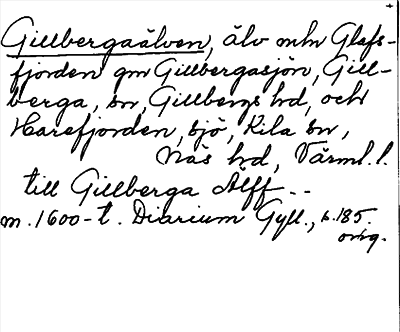 Gillbergaälven, älv mln Glafs-
fjorden gm Gillbergasjön, Gill-
berga, sn, Gillbergs hd, och
Harefjorden, sjö, Kila sn,
Näs hd, Värml. l.
till Gillberga Älff --
m. 1600-t. Diarium Gyll., s. 185.
orig.